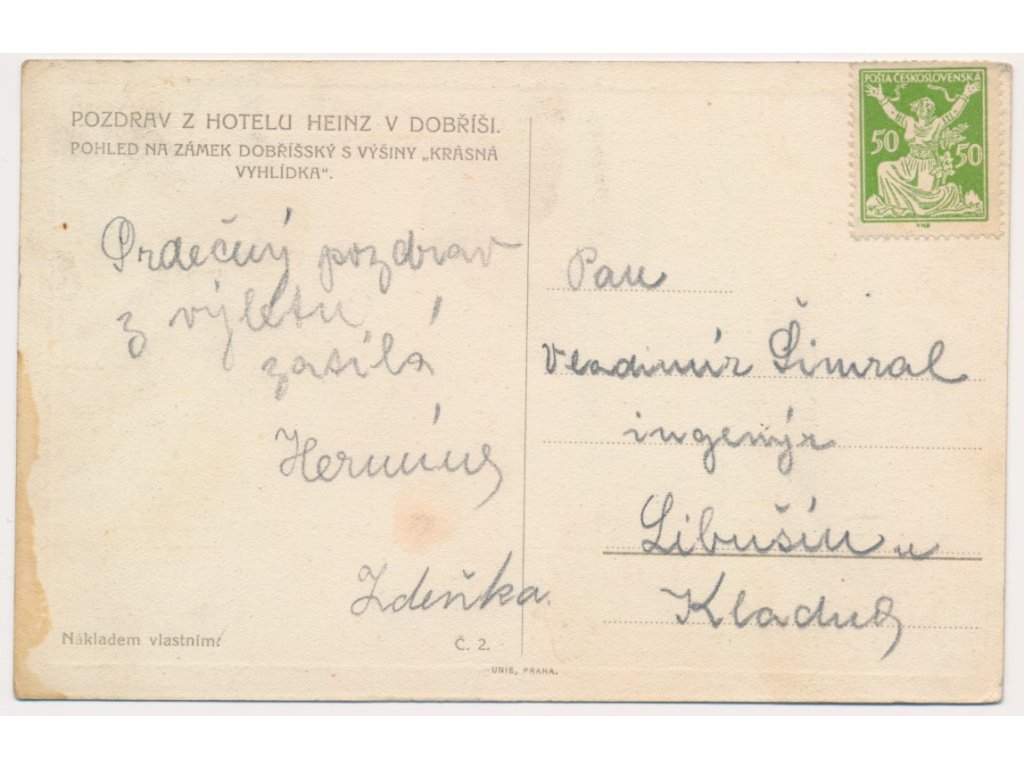 POZDRAV Z HOTELU HEINZ V DOBŘÍŠI.
POHLED NA ZÁMEK DOBŘÍŠSKÝ S VÝŠINY „KRÁSNÁ
VYHLÍDKA“.
Srdečný pozdrav
z výletu
zasílá
Hermína
Zdeňka.
Nákladem vlastním.
Č. 2.
UNIE, PRAHA.
POŠTA ČESKOSLOVENSKÁ
50 50
Pan
Vladimír Šimral
ingenýr
Libušín u
Kladna